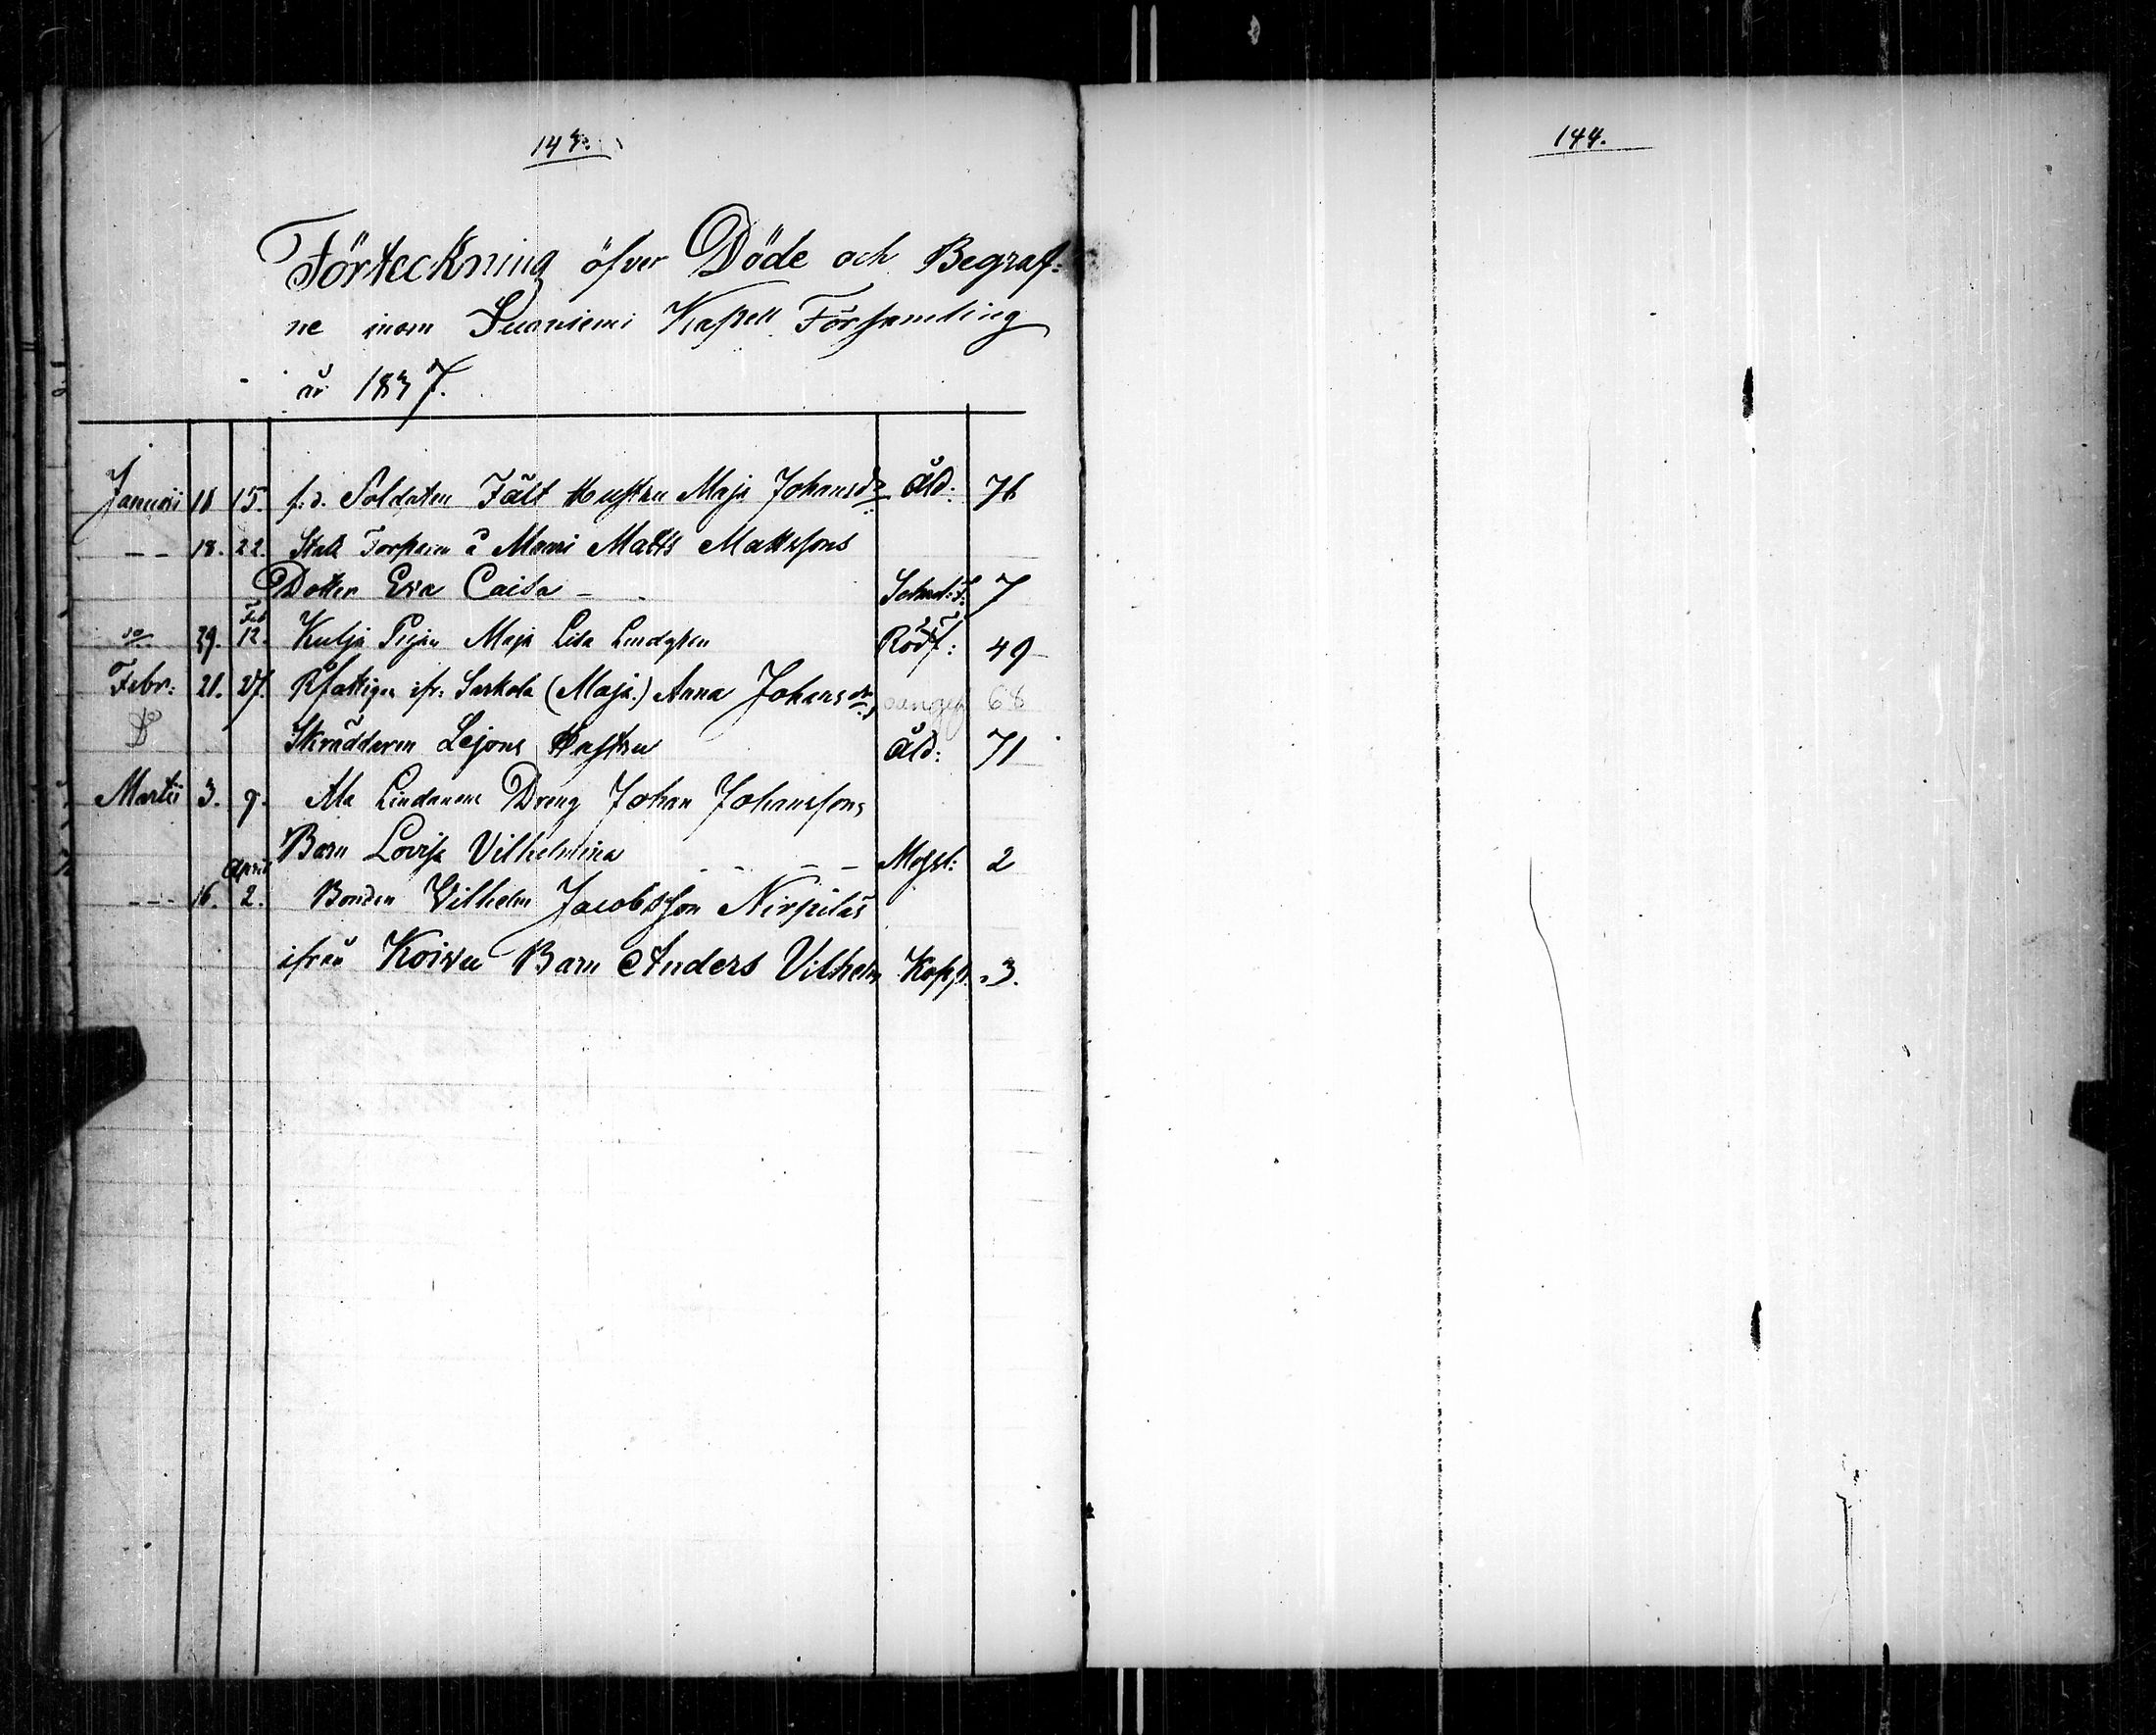 143.
Förteckning öfver Döde och Begraf-
ne inom Suoniemi Kapell Församling
år 1837.
Januarii 11 15. f.d. Soldaten Fält Hustru Maja Johansdr Åld: 76
-- 18. 22. Stata Torparen å Mauri Matts Mattssons
Dotter Eva Caisa - 7
do 29. Feb 12. Kulju Pigan Maja Lisa Lindgren Rödf: 49
Febr: 21. 27. Rfattigen ifr. Sarkola (Maja) Anna Johansdr, oangif 68
D Skräddaren Lejons Hustru Åld: 71
Martii 3. 9. Ala Lindanens Dreng Johan Johanssons
Barn Lovisa Vilhelmina - - - - Messl: 2
--- 16. April 2. Bonden Vilhelm Jacobsson Nirpiläs
ifrån Koivu Barn Anders Vilhelm Kopp. 3.
144.